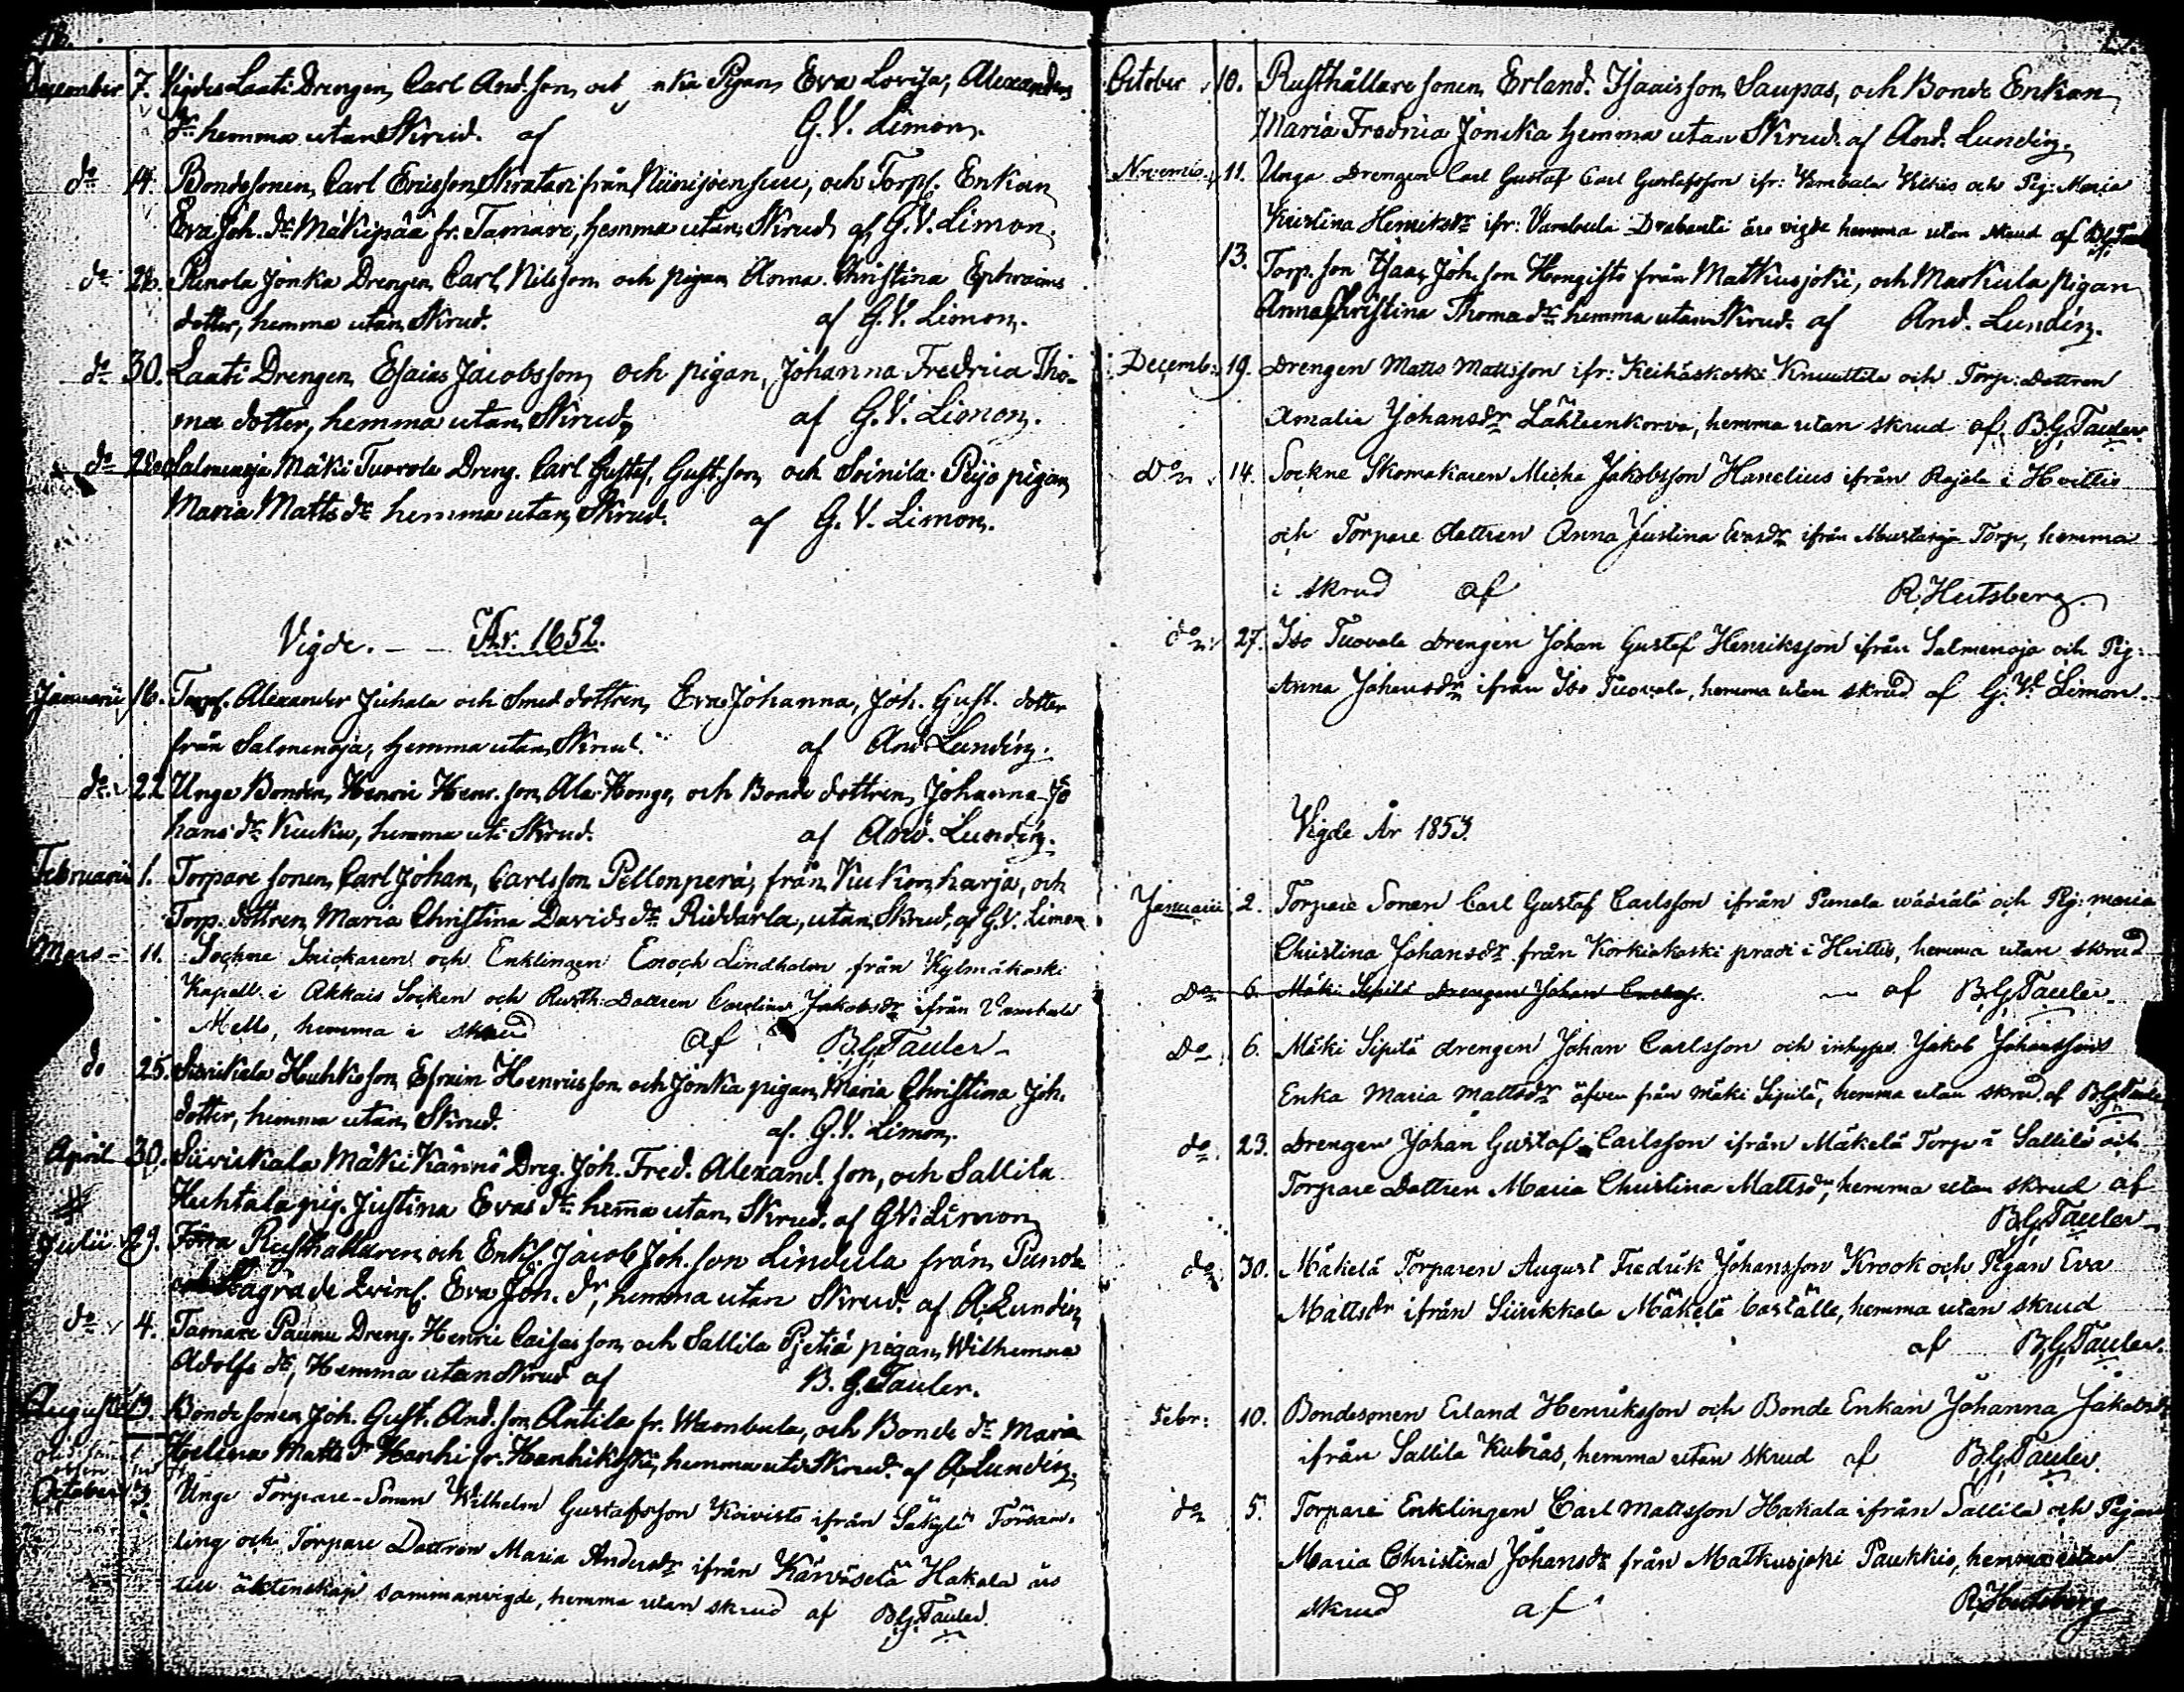 December 7. Vigdes Laati Drengen, Carl And.son, och Pigan, Eva Lovisa, Alexanders
dr hemma utan Skrud. af G. V. Limon.
do 14. Bondesonen, Carl Ericsson, Skratari från Niinisjoensuu, och Torp. Enkan
Eva Joh. dr Mäkipää fr. Tamare, hemma utan Skrud, af G. V. Limon.
do 26. Punola Jonka Drengen, Carl Nilsson, och pigan Anna Christina Ephraims
dotter, hemma utan Skrud. af G. V. Limon.
do 30. Laati Drengen, Esaias Jacobsson, och pigan, Johanna Fredrica Tho-
ma dotter, hemma utan Skrud, af G. V. Limon.
do 28. Salmenoja Mäki Tuovola Dreng. Carl Gustaf, Gust.son, och Soinila Peijo pigan,
Maria Matts dr hemma utan Skrud. af G. V. Limon.
Vigde. — År. 1852.
Januarii 16. Torp. Alexander Juhala och Smed dottren, Eva Johanna, Joh. Gust. dotter
från Salmenoja, hemma utan Skrud. af And. Lundén.
do 22 Unga Bonden, Henric Henr. son, Ala-Hongo, och Bonde dottren, Johanna Jo
hans dr Kuuku, hemma uti Skrud. af And. Lundén.
Februarii 1. Torpare sonen, Carl Johan, Carlsson Pellonperä, från Kuikonharja, och
Torp. dottren, Maria Christina Davids dr Riddarla, utan Skrud, af G. V. Limon
Mars - 11. Sockne Snickaren och Enklingen Enoch Lindholm från Kylmäkoski
Kapell i Akkais Socken och Rusth: Dottren Carolina Jakobsdr ifrån Vambula
Mells, hemma i skrud af B.G. Tauler
do 25. Huhko son, Efraim Henricsson och Jonka pigan, Maria Christina Joh.
dotter, hemma utan Skrud. af. G. V. Limon.
April 30. Suiviskala Mäki Kännö Dreg. Joh. Fred. Alexand. son, och Sallila
Huhtala pig. Justina Evas dr hemma utan Skrud. af G V. Limon
Julii 29. Förra Rusthållaren, och Enkl. Jacob Joh. son Lindula från Punola
och Lägrade Qvinf. Eva Joh. dr, hemma utan Skrud. af A. Lundén,
do 4. Tamare Paunu Dreng. Henric son, och Sallila Pjetiä pigan, Wilhemina
Adolfs dr, Hemma utan Skrud af B. G. Tauler.
Augusti 19. Bondesonen, Joh. Gust. And.son Antila fr. Wambula, och Bonde dr Maria
Helena Matts dr Hanhi fr. Hanhikoski, hemma uti Skrud. af A. Lundén.
October 3. Unge Torpare-Sonen Wilhelm Gustafsson Koivisto ifrån Säkylä Försam-
ling och Torpare Dottren Maria Andersdr ifrån Kärväselä Hakala äro
till äktenskap sammanvigde, hemma utan skrud af B.G. Tauler
October 10. Rusthållare sonen, Erland Isaacsson, Saupas, och Bonde Enkan
Maria Fredrica Joncka hemma utan Skrud. af And. Lundén.
Novemb. 11. Unga Drengen Carl Gustaf Carl Gustafsson ifr: Vambula Kilkis och Pig: Maria
Kristina Henriksdr ifr: Vambula Drabanti äro vigde hemma utan skrud af B.G. Tauler
13. Torp. son Isaac Joh. son Hongisto från Matkusjoki, och Markula pigan,
Anna Christina Thoma dr hemma utan Skrud. af And. Lundén.
Decemb: 19. Drengen Matts Mattsson ifr: Keihäskoski Knuuttila och Torp: Dottren
Amalia Johansdr Lähteenkorva, hemma utan skrud af B.G. Tauler.
do 14. Sockne Skomakaren Micka Jakobsson Hanelius ifrån Rajala i Hvittis
och Torpare dottren Anna Justina Evasdr ifrån Mustaoja Torp, hemma
i skrud af R. Heitsberg.
do 27. Iso Tuovola drengen Johan Gustaf Henriksson ifrån Salmenoja och Pig:
Anna Johansdr ifrån Iso Tuovola, hemma utan skrud af G. V. Limon.
Vigde År 1853.
Januarii 2. Torpare Sonen Carl Gustaf Carlsson ifrån Punola wäärälä och Pig: Maria
Christina Johansdr från Korkiakoski i Hvittis, hemma utan skrud
do 6. Mäki Sipilä drengen Johan Carlss. — af B.G. Tauler.
do 6. Mäki Sipilä drengen Johan Carlsson och inhyses Jakob Johanssons
Enka Maria Mattsdr äfven från Mäki Sipilä, hemma utan skrud af B.G. Tauler
do 23. Drengen Johan Gustaf Carlsson ifrån Mäkelä Torp i Sallila och
Torpare Dottren Maria Christina Mattsdr, hemma utan skrud af
B.G. Tauler
do 30. Mäkelä Torparen August Fredrik Johansson Krook och Pigan Eva
Mattsdr ifrån Suikkala Mäkelä boställe, hemma utan skrud
af B.G. Tauler.
Febr: 10. Bondesonen Erland Henriksson och Bonde Enkan Johanna Jakobsdr
ifrån Sallila Kubias, hemma utan skrud af B.G. Tauler.
do 5. Torpare Enklingen Carl Mattsson Hakala ifrån Sallila och Pigan
Maria Christina Johansdr från Matkusjoki Paukkio, hemma utan
skrud af R. Heitsberg